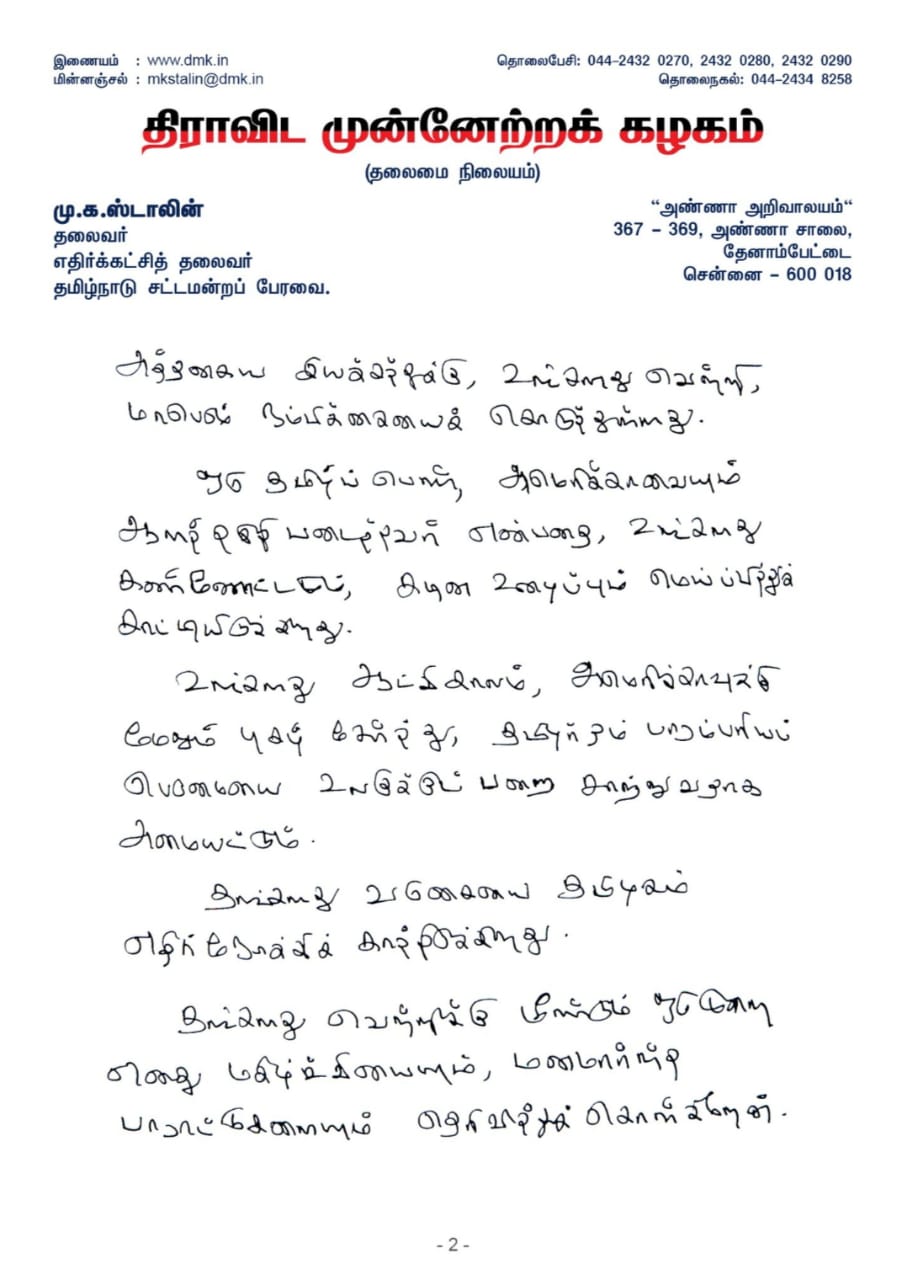 இணையம் : www.dmk.in
மின்னஞ்சல் : mkstalin@dmk.in
தொலைபேசி: 044-2432 0270, 2432 0280, 2432 0290
தொலைநகல்: 044-2434 8258
திராவிட முன்னேற்றக் கழகம்
(தலைமை நிலையம்)
மு.க.ஸ்டாலின்
தலைவர்
எதிர்க்கட்சித் தலைவர்
தமிழ்நாடு சட்டமன்றப் பேரவை.
“அண்ணா அறிவாலயம்“
367 – 369, அண்ணா சாலை,
தேனாம்பேட்டை
சென்னை – 600 018
அத்தகைய இயக்கத்துக்கு, உங்களது வெற்றி,
மாபெரும் நம்பிக்கையைக் கொடுத்துள்ளது.
ஒரு தமிழ்ப் பெண், அமெரிக்காவையும்
ஆளத் தகுதி படைத்தவர் என்பதை, உங்களது
கண்ணோட்டமும், கடின உழைப்பும் மெய்ப்பித்துக்
காட்டியிருக்கிறது.
உங்களது ஆட்சிகாலம், அமெரிக்காவுக்கு
மேலும் புகழ் சேர்த்து, தமிழர்தம் பாரம்பரியப்
பெருமையை உலகுக்குப் பறை சாற்றுவதாக
அமையட்டும்.
தங்களது வருகையை தமிழகம்
எதிர்நோக்கிக் காத்திருக்கிறது.
தங்களது வெற்றிக்கு மீண்டும் ஒருமுறை
எனது மகிழ்ச்சியையும், மனமார்ந்த
பாராட்டுகளையும் தெரிவித்துக் கொள்கிறேன்.
- 2 -